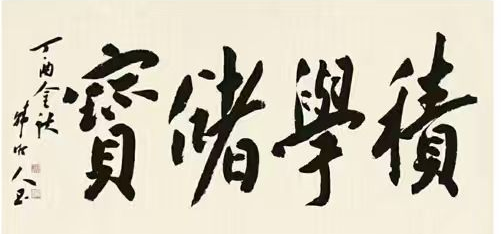 積學儲寶
丁酉金秋
人書